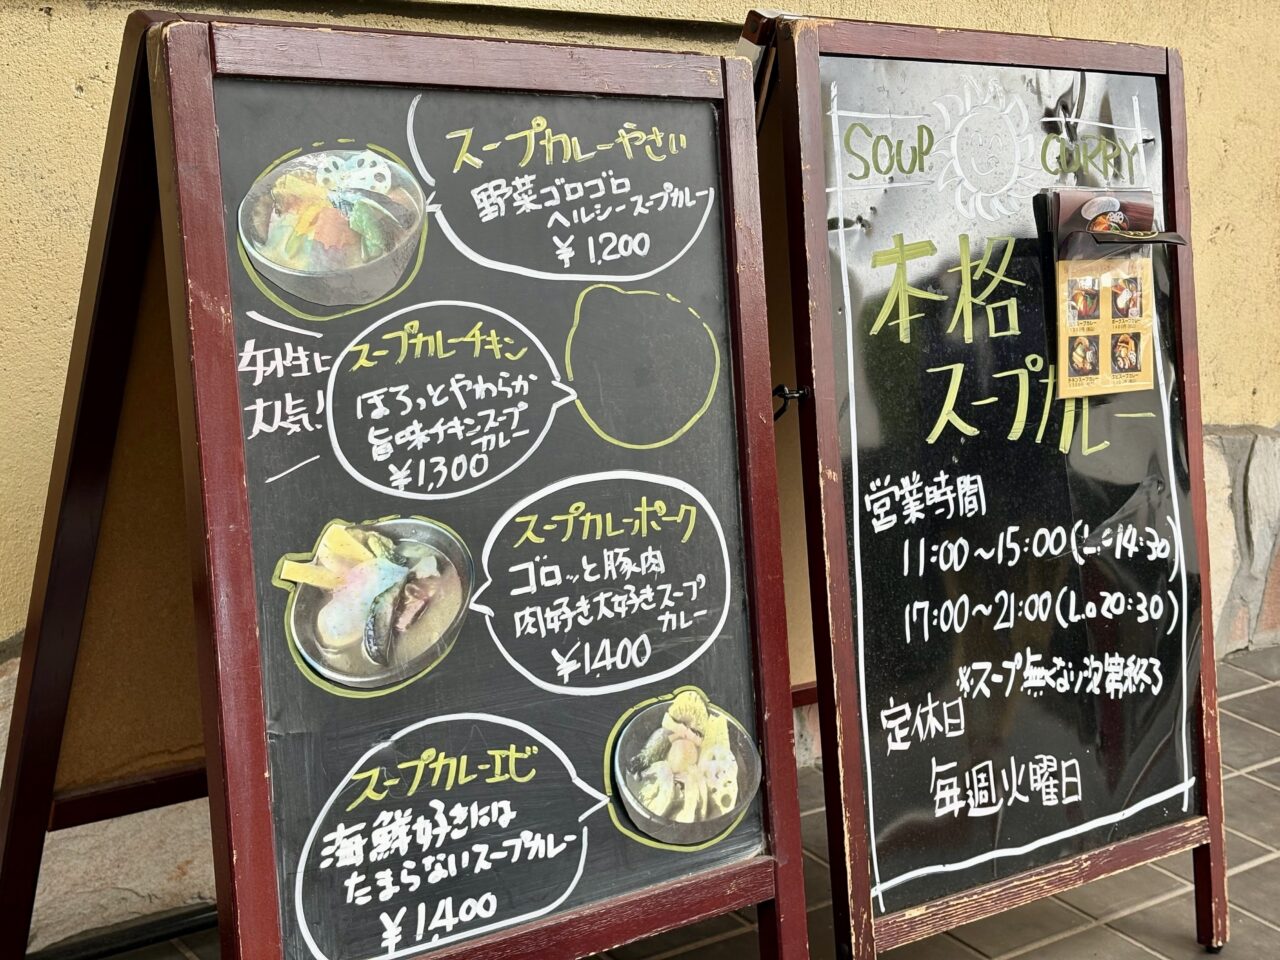 スープカレーやさい
野菜ゴロゴロ
ヘルシースープカレー
¥1,200
女性に
大人気!
スープカレーチキン
ほろっとやわらか
旨味チキンスープ
カレー
¥1,300
スープカレーポーク
ゴロッと豚肉
肉好き大好きスープ
カレー
¥1,400
スープカレーエビ
海鮮好きには
たまらないスープカレー
¥1,400
SOUP CURRY
本格
スープカレー
営業時間
11:00〜15:00(L.o 14:30)
17:00〜21:00(L.o 20:30)
※スープ無くなり次第終了
定休日
毎週火曜日